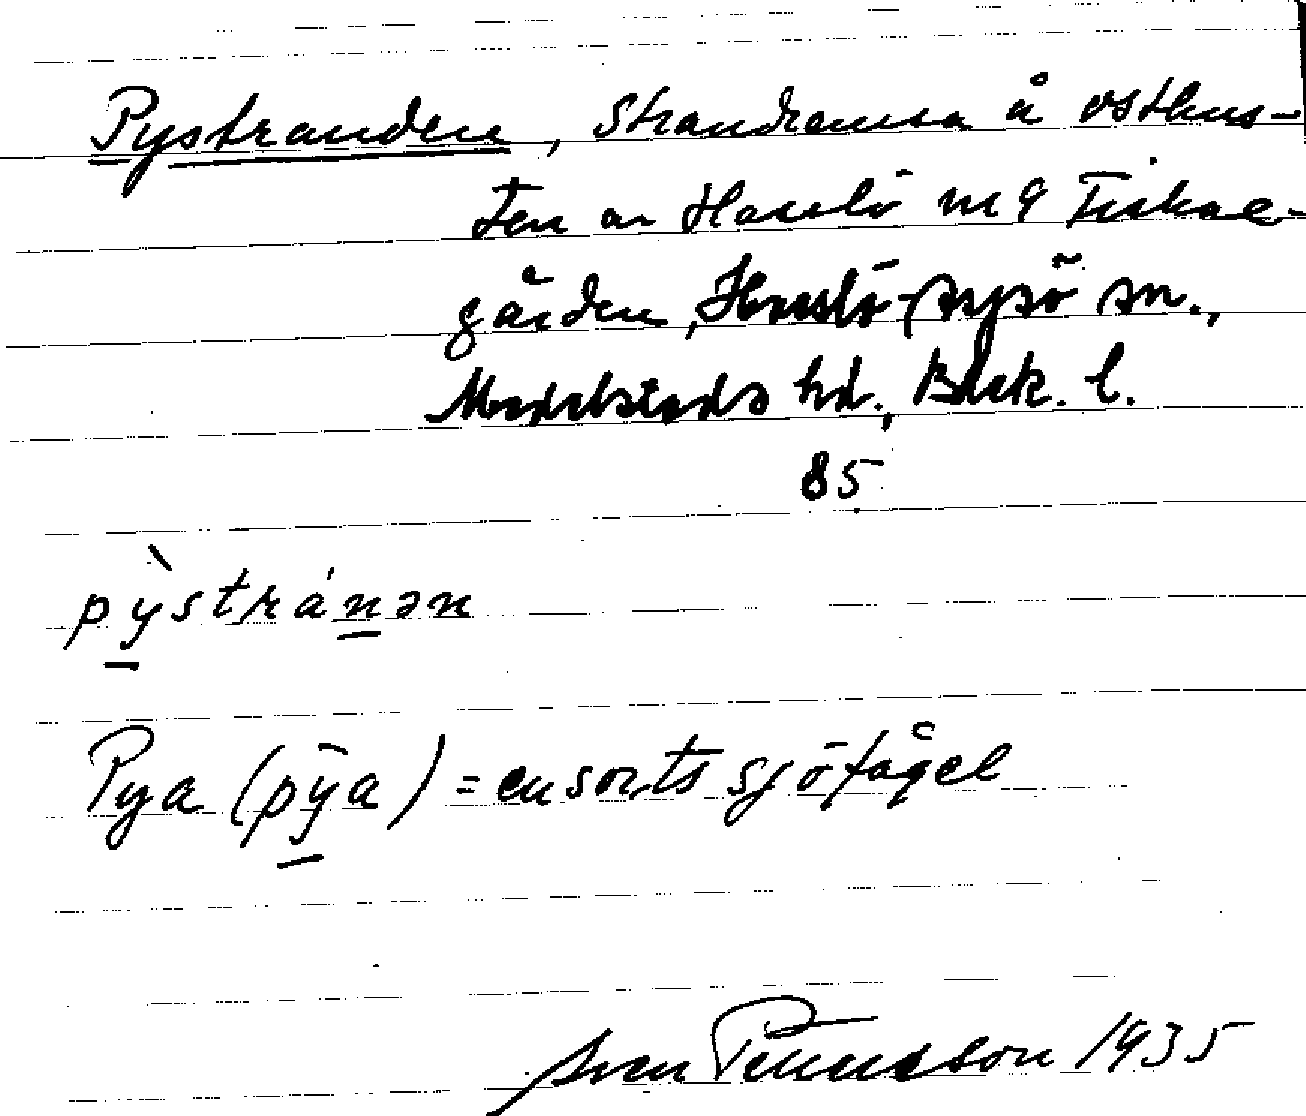 Pystranden, Strandremsa å östkus-
ten av Hasslö nr 9 Fiskare-
gården, Hasslö-Aspö sn.,
Medelstads hd., Blek. l.
85
pỳstránən
Pya (pȳa) = en sorts sjöfågel
Sven 1935